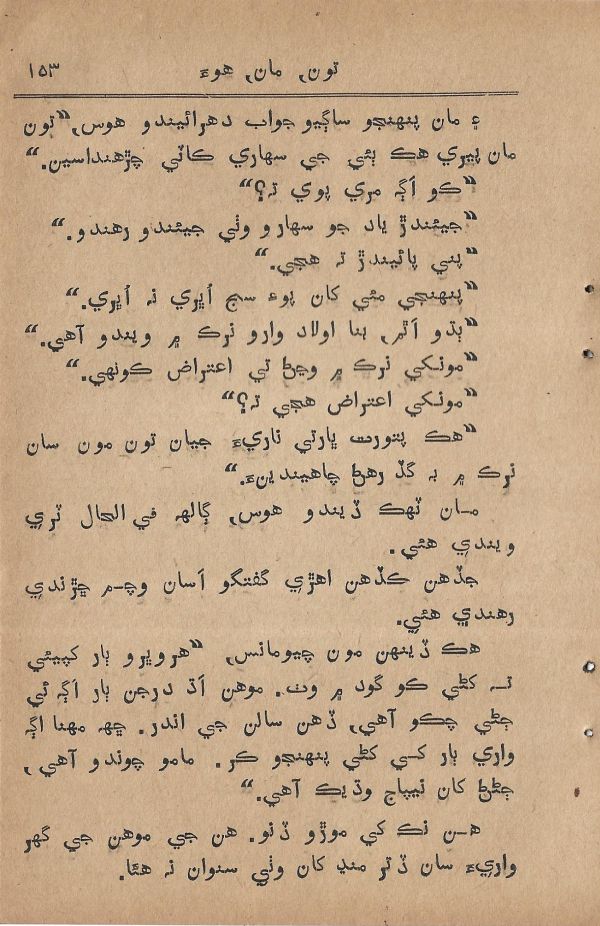 تون, مان, هوءَ ١٥٣
۽ مان پنهنجو ساڳيو جواب دهرائيندو هوس, “تون
مان پيري هڪ ٻئي جي سهاري ڪاٽي چڙهنداسين.“
“ڪو اَڳہ مري پوي تہ؟“
“جيئندڙ ياد جو سهارو وٺي جيئندو رهندو.“
“پٺي پائيندڙ تہ هجي.“
“پنهنجي مئي کان پوءِ سج اُڀري نہ اُڀري.“
“ٻڌو اَٿم, بنا اولاد وارو نرڪ ۾ ويندو آهي.“
“مونکي نرڪ ۾ وڃڻ تي اعتراض ڪونهي.“
“مونکي اعتراض هجي تہ؟“
“هڪ پتورت ڀارتي ناريءَ جيان تون مون سان
نرڪ ۾ بہ گڏ رهڻ چاهيندينءَ.“
مان ٽهڪ ڏيندو هوس, ڳالهہ في الحال ٽري
ويندي هئي.
جڏهن ڪڏهن اهڙي گفتگو اَسان وچ۾ ڇڙندي
رهندي هئي.
هڪ ڏينهن مون چيومانس, “هروڀرو ٻار کپيئي
تہ کڻي ڪو گود ۾ وٺ. موهن اَڌ درجن ٻار اَڳہ ئي
ڄڻي چڪو آهي, ڏهن سالن جي اندر. ڇهہ مهنا اڳہ
واري ٻار کي کڻي پنهنجو ڪر. مامو چوندو آهي,
ڄڻڻ کان نيپاج وڌيڪ آهي.“
هن نڪ کي موڙو ڏنو. هن جي موهن جي گهر
واريءَ سان ڏٽر منڍ کان وٺي سنوان نہ هئا.